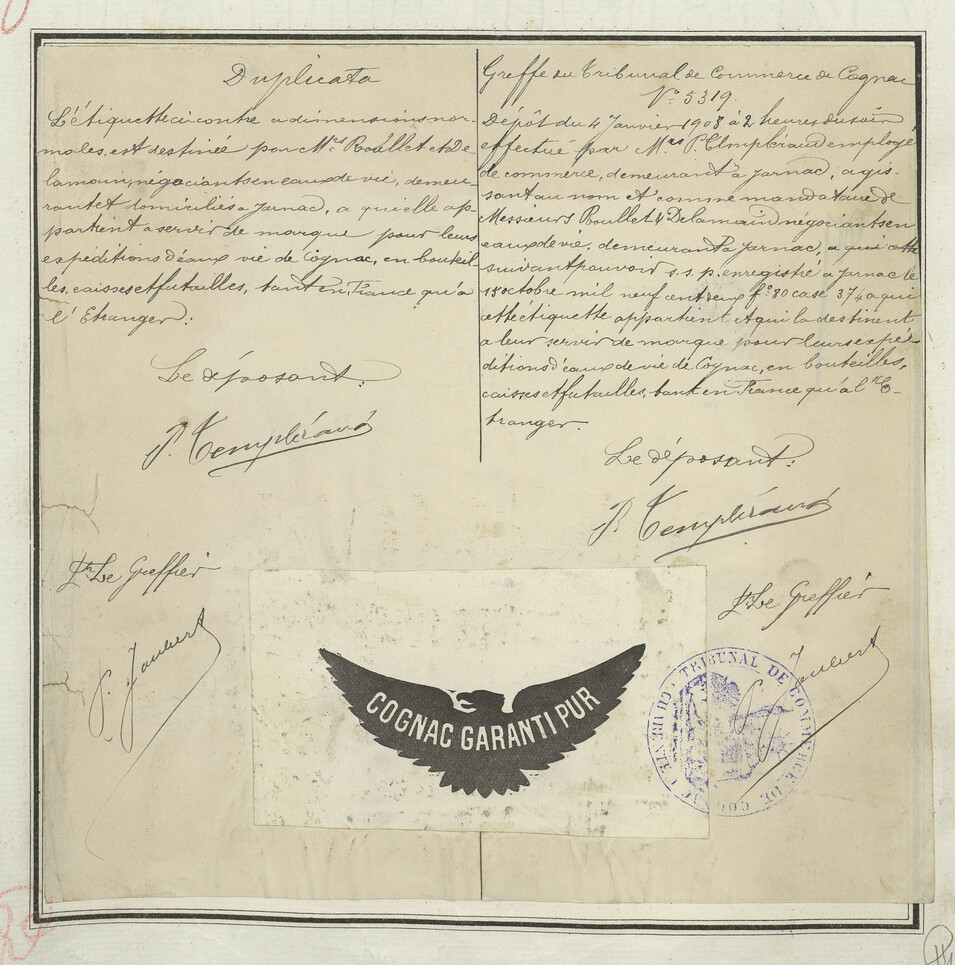 Duplicata
L'étiquette ci contre a dimensions nor-
males, est destinée par Mrs Roullet et De
lamain, négociants en eaux de vie, demeu-
rant et domiciliés a Jarnac, a qui elle ap-
partient a servir de marque pour leurs
expéditions d'eaux vie de Cognac, en bouteil
les, caisses et futailles, tant en France qu'a
l'Etranger:
Le déposant:
P. Templéraud
Pr Le Greffier
P. Joubert
Greffe du Tribunal de Commerce de Cognac
No 5319.
Dépôt du 4 Janvier 1908 à 2 heures du soir
effectué par Mrs P. Templéraud employé
de commerce, demeurant a Jarnac, agis-
sant au nom et comme mandataire de
Messieurs Roullet & Delamain négociants en
eaux de vie, demeurant a Jarnac, a qui cette
suivant pouvoir s.s.p. enregistré a Jarnac le
15 octobre mil neuf cent deux fo 80 case 374 a qui
cette étiquette appartient et qui la destinent
a leur servir de marque pour leurs expé
ditions d'eaux de vie de Cognac, en bouteilles,
caisses et futailles, tant en France qu'a l'E-
tranger.
Le déposant:
P. Templéraud
Pr Le Greffier
Joubert
COGNAC GARANTI PUR
TRIBUNAL DE COMMERCE DE COGNAC